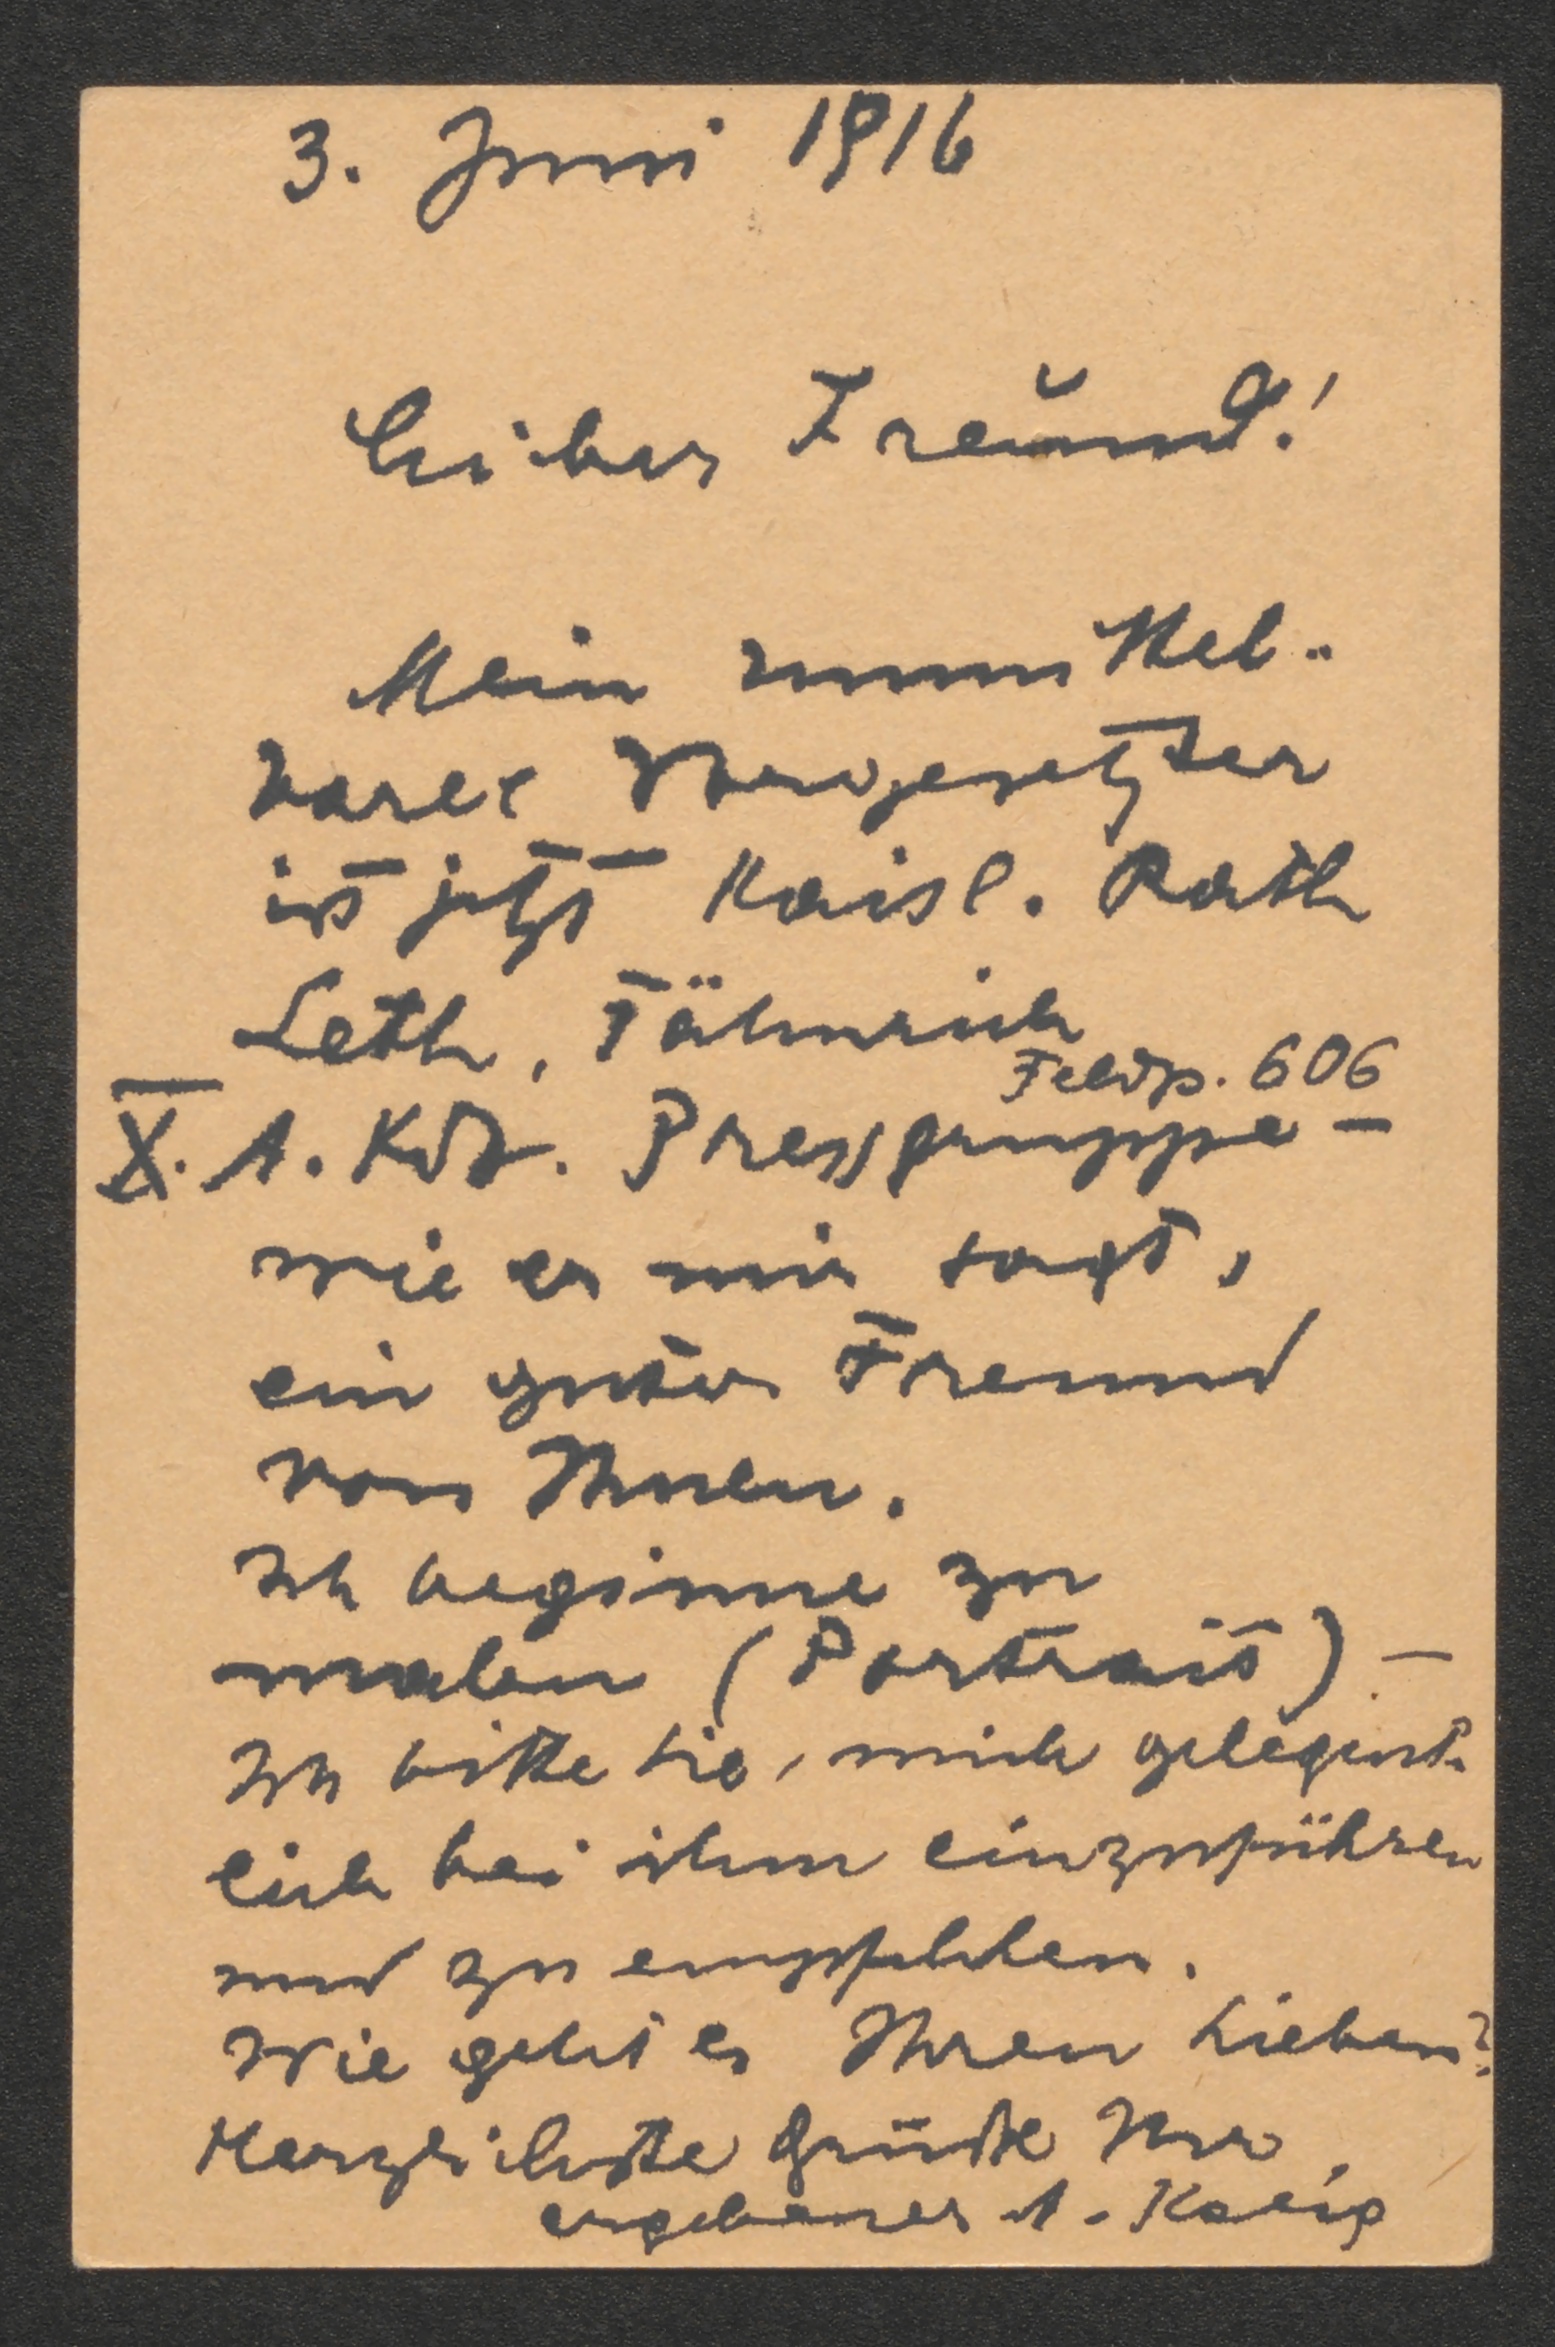 3. Juni 1916
Lieber Freund!
Mein unmittel-
barer Vorgesetzter
ist jetzt Kaisl. Rath
Leth, Fähnrich
Feldp. 606
X. A. Kdo. Pressgruppe –
wie er mir sagt,
ein guter Freund
von Ihnen.
Ich beginne zu
malen (Portrait). –
Ich bitte Sie, mich gelegent-
lich bei ihm einzuführen
und zu empfehlen.
Wie geht es Ihren Lieben?
Herzlichste Grüße Ihr
ergebener A.